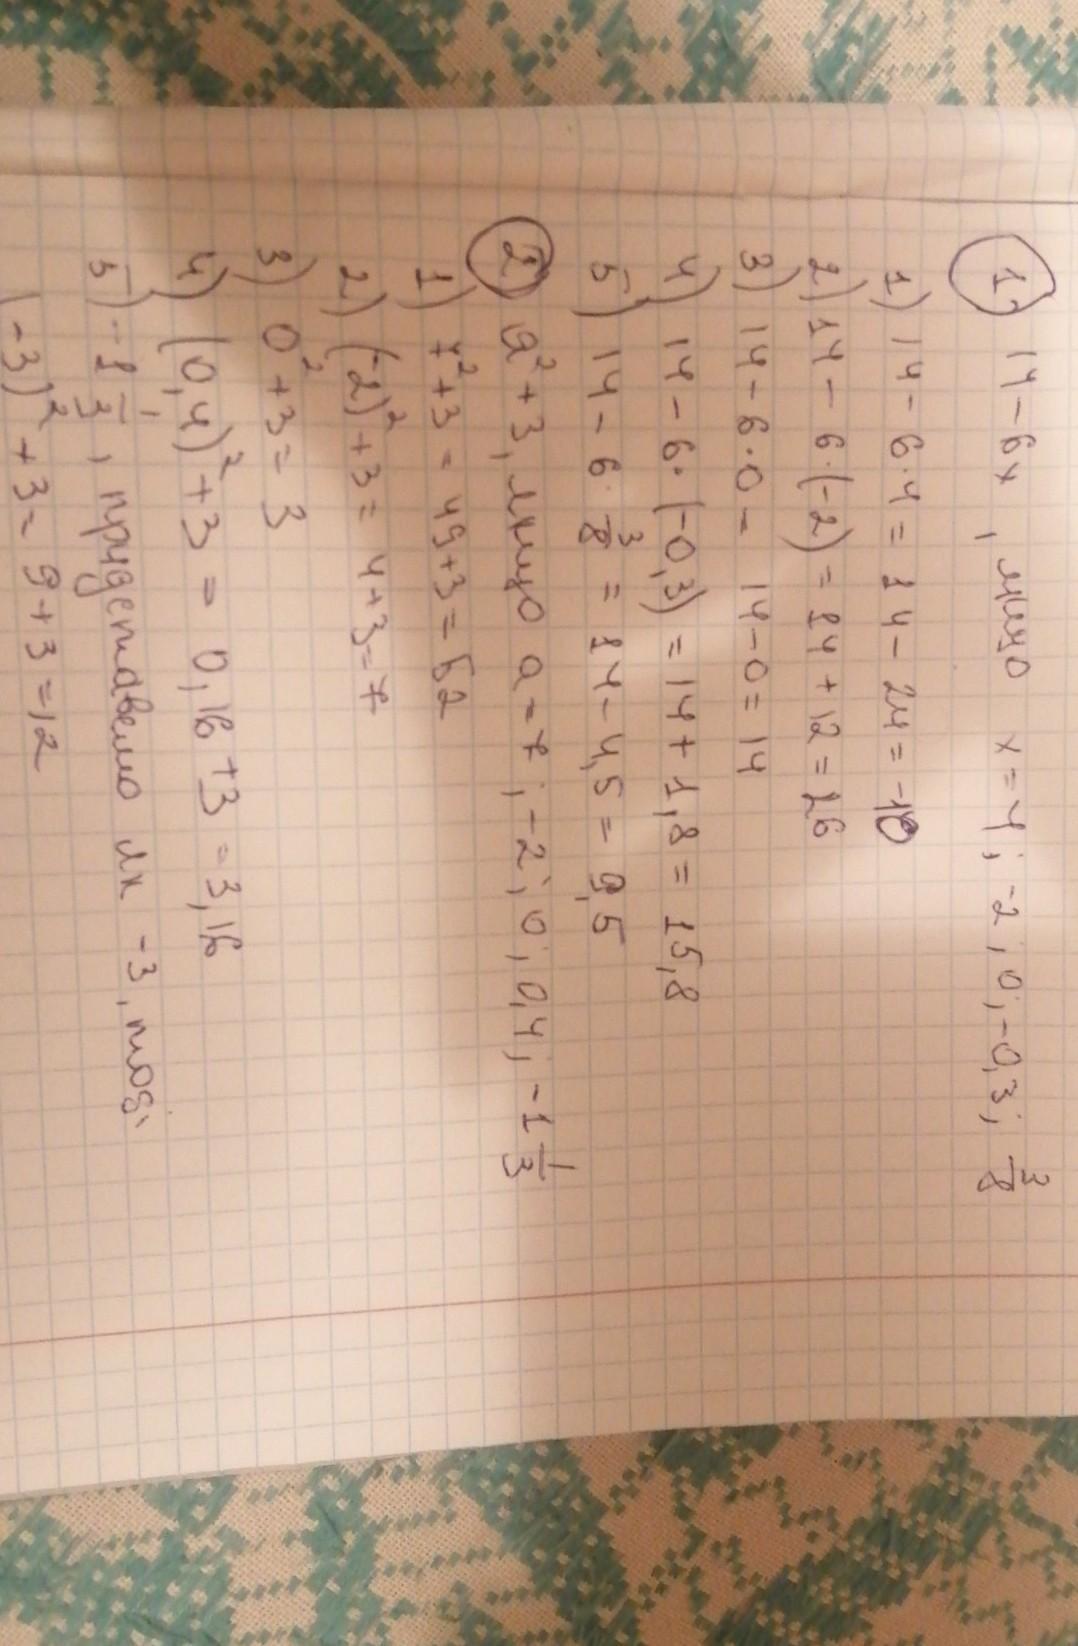 1 14 - 6x, якщо x = 4; -2; 0; -0,3; 3/8
1) 14 - 6·4 = 14 - 24 = -10
2) 14 - 6·(-2) = 14 + 12 = 26
3) 14 - 6·0 = 14 - 0 = 14
4) 14 - 6·(-0,3) = 14 + 1,8 = 15,8
5) 14 - 6·3/8 = 14 - 4,5 = 9,5
2 a² + 3, якщо a = 7; -2; 0; 0,4; -1 1/3
1) 7² + 3 = 49 + 3 = 52
2) (-2)² + 3 = 4 + 3 = 7
3) 0² + 3 = 3
4) (0,4)² + 3 = 0,16 + 3 = 3,16
5) -1 1/3, представемо як -3, тоді
(-3)² + 3 = 9 + 3 = 12